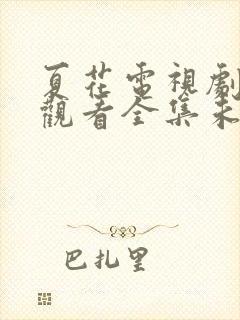 夏花電視劇
觀看全集未
巴扎里